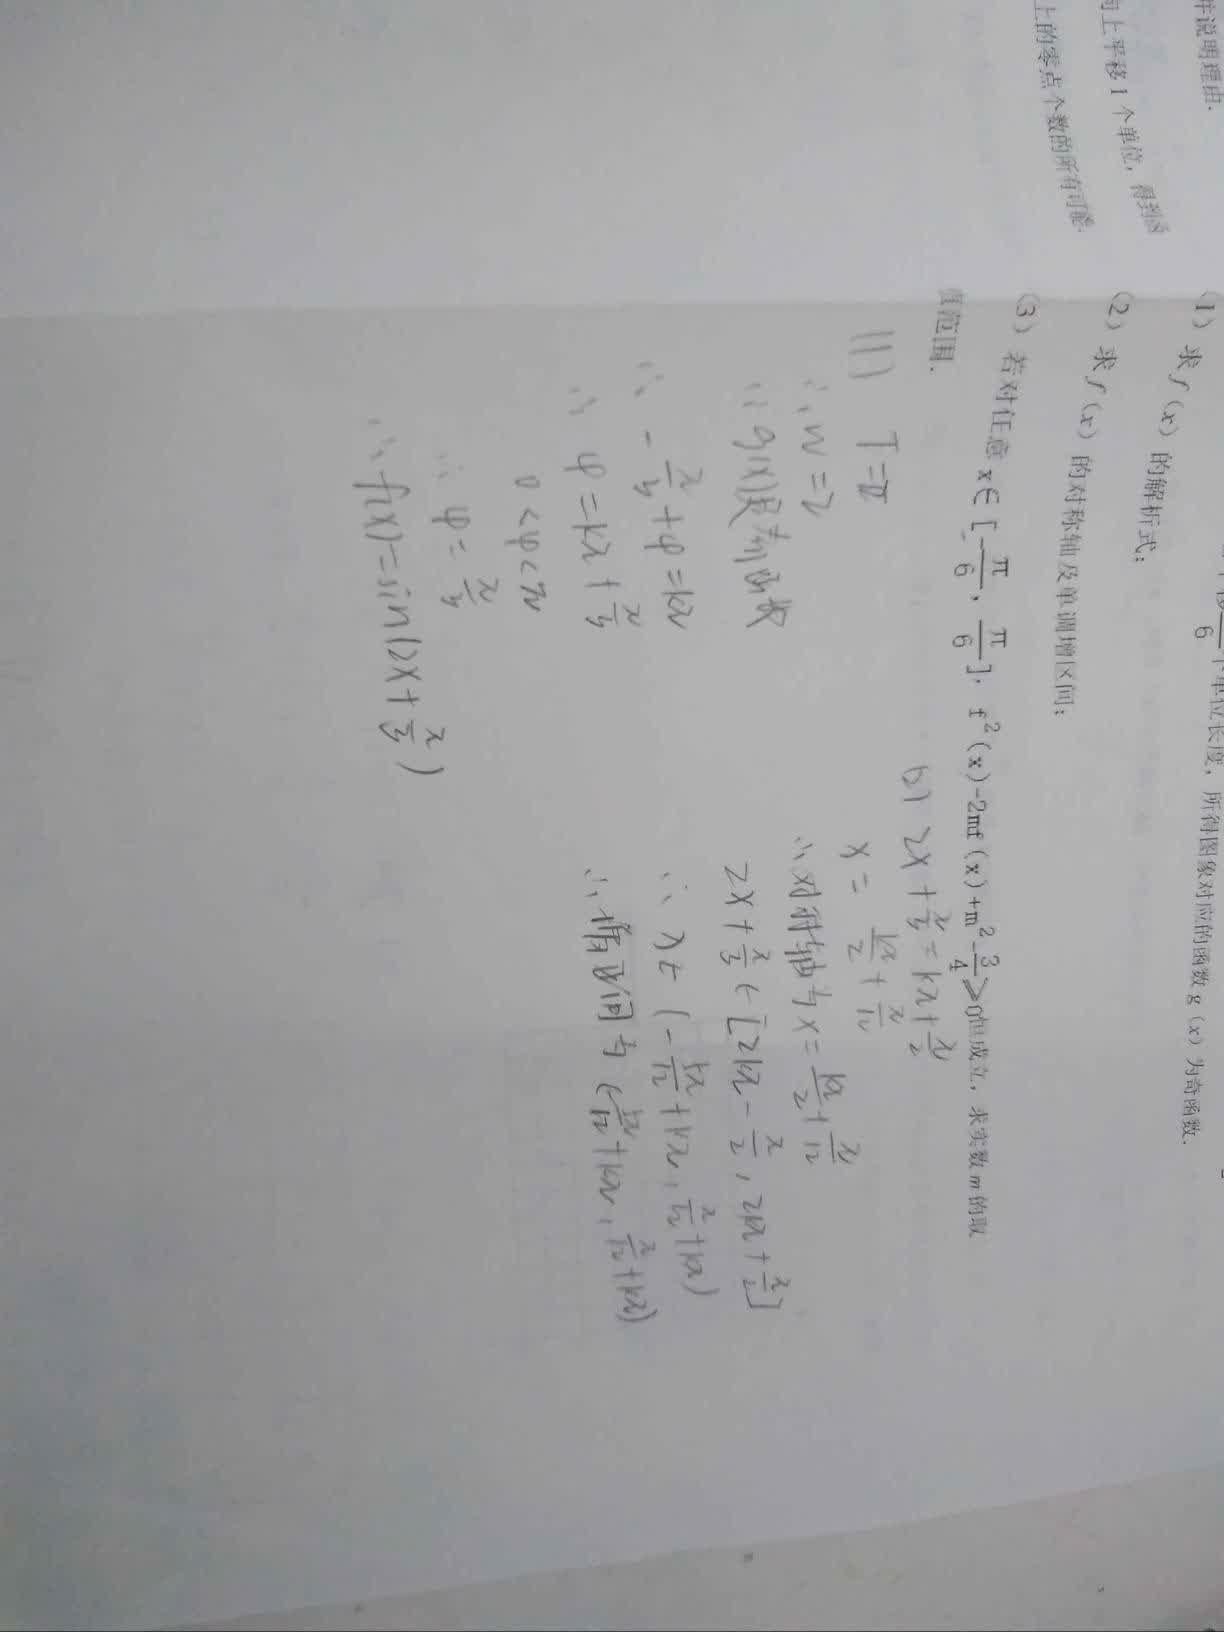 并说明理由.
向上平移1个单位，得到函
上的零点个数的所有可能
6 个单位长度，所得图象对应的函数g（x）为奇函数.
（1）求f（x）的解析式；
（2）求f（x）的对称轴及单调增区间；
（3）若对任意x∈[-π/6, π/6], f²(x)-2mf(x)+m²-3/4≥0恒成立，求实数m的取
值范围.
(1) T=π
∴w=2
∵g(x)是奇函数
∴-π/3+φ=kπ
∴φ=kπ+π/3
0<φ<π
∴φ=π/3
∴f(x)=sin(2x+π/3)
(2) 2x+π/3=kπ+π/2
x=kπ/2+π/12
∴对称轴为x=kπ/2+π/12
2x+π/3∈[2kπ-π/2, 2kπ+π/2]
∴x∈(-5π/12+kπ, π/12+kπ)
∴增区间为(5π/12+kπ, π/12+kπ)